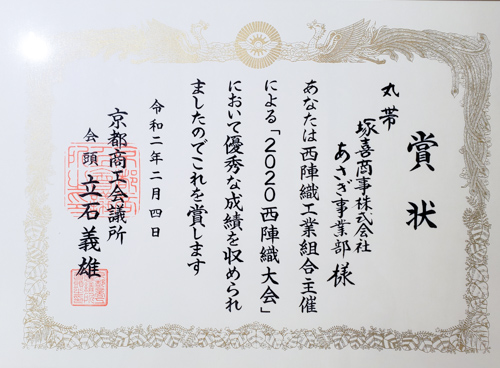 賞状
丸帯
塚喜商事株式会社
あさぎ事業部 様
あなたは西陣織工業組合主催
による「2020西陣織大会」
において優秀な成績を収められ
ましたのでこれを賞します
令和二年二月四日
京都商工会議所
会頭 立石義雄